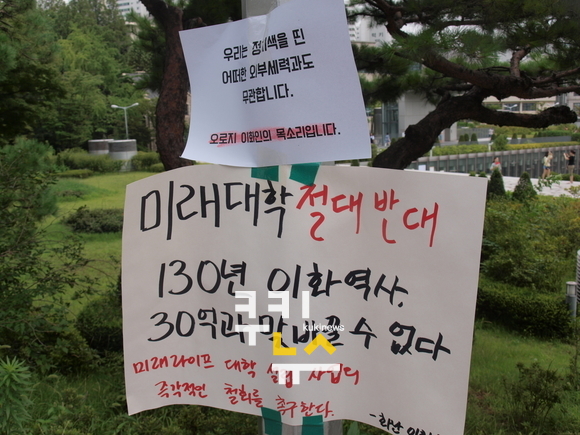 우리는 정치색을 띤
어떠한 외부세력과도
무관합니다.
오로지 이화인의 목소리입니다.
미래대학 절대반대
130년 이화역사,
30억과 맞바꿀 수 없다
쿠키뉴스
kukinews
미래라이프 대학 설립 사업의
즉각적인 철회를 촉구한다.
-화난